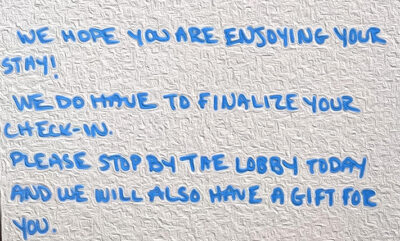 WE HOPE YOU ARE ENJOYING YOUR
STAY!
WE DO HAVE TO FINALIZE YOUR
CHECK-IN.
PLEASE STOP BY THE LOBBY TODAY
AND WE WILL ALSO HAVE A GIFT FOR
YOU.